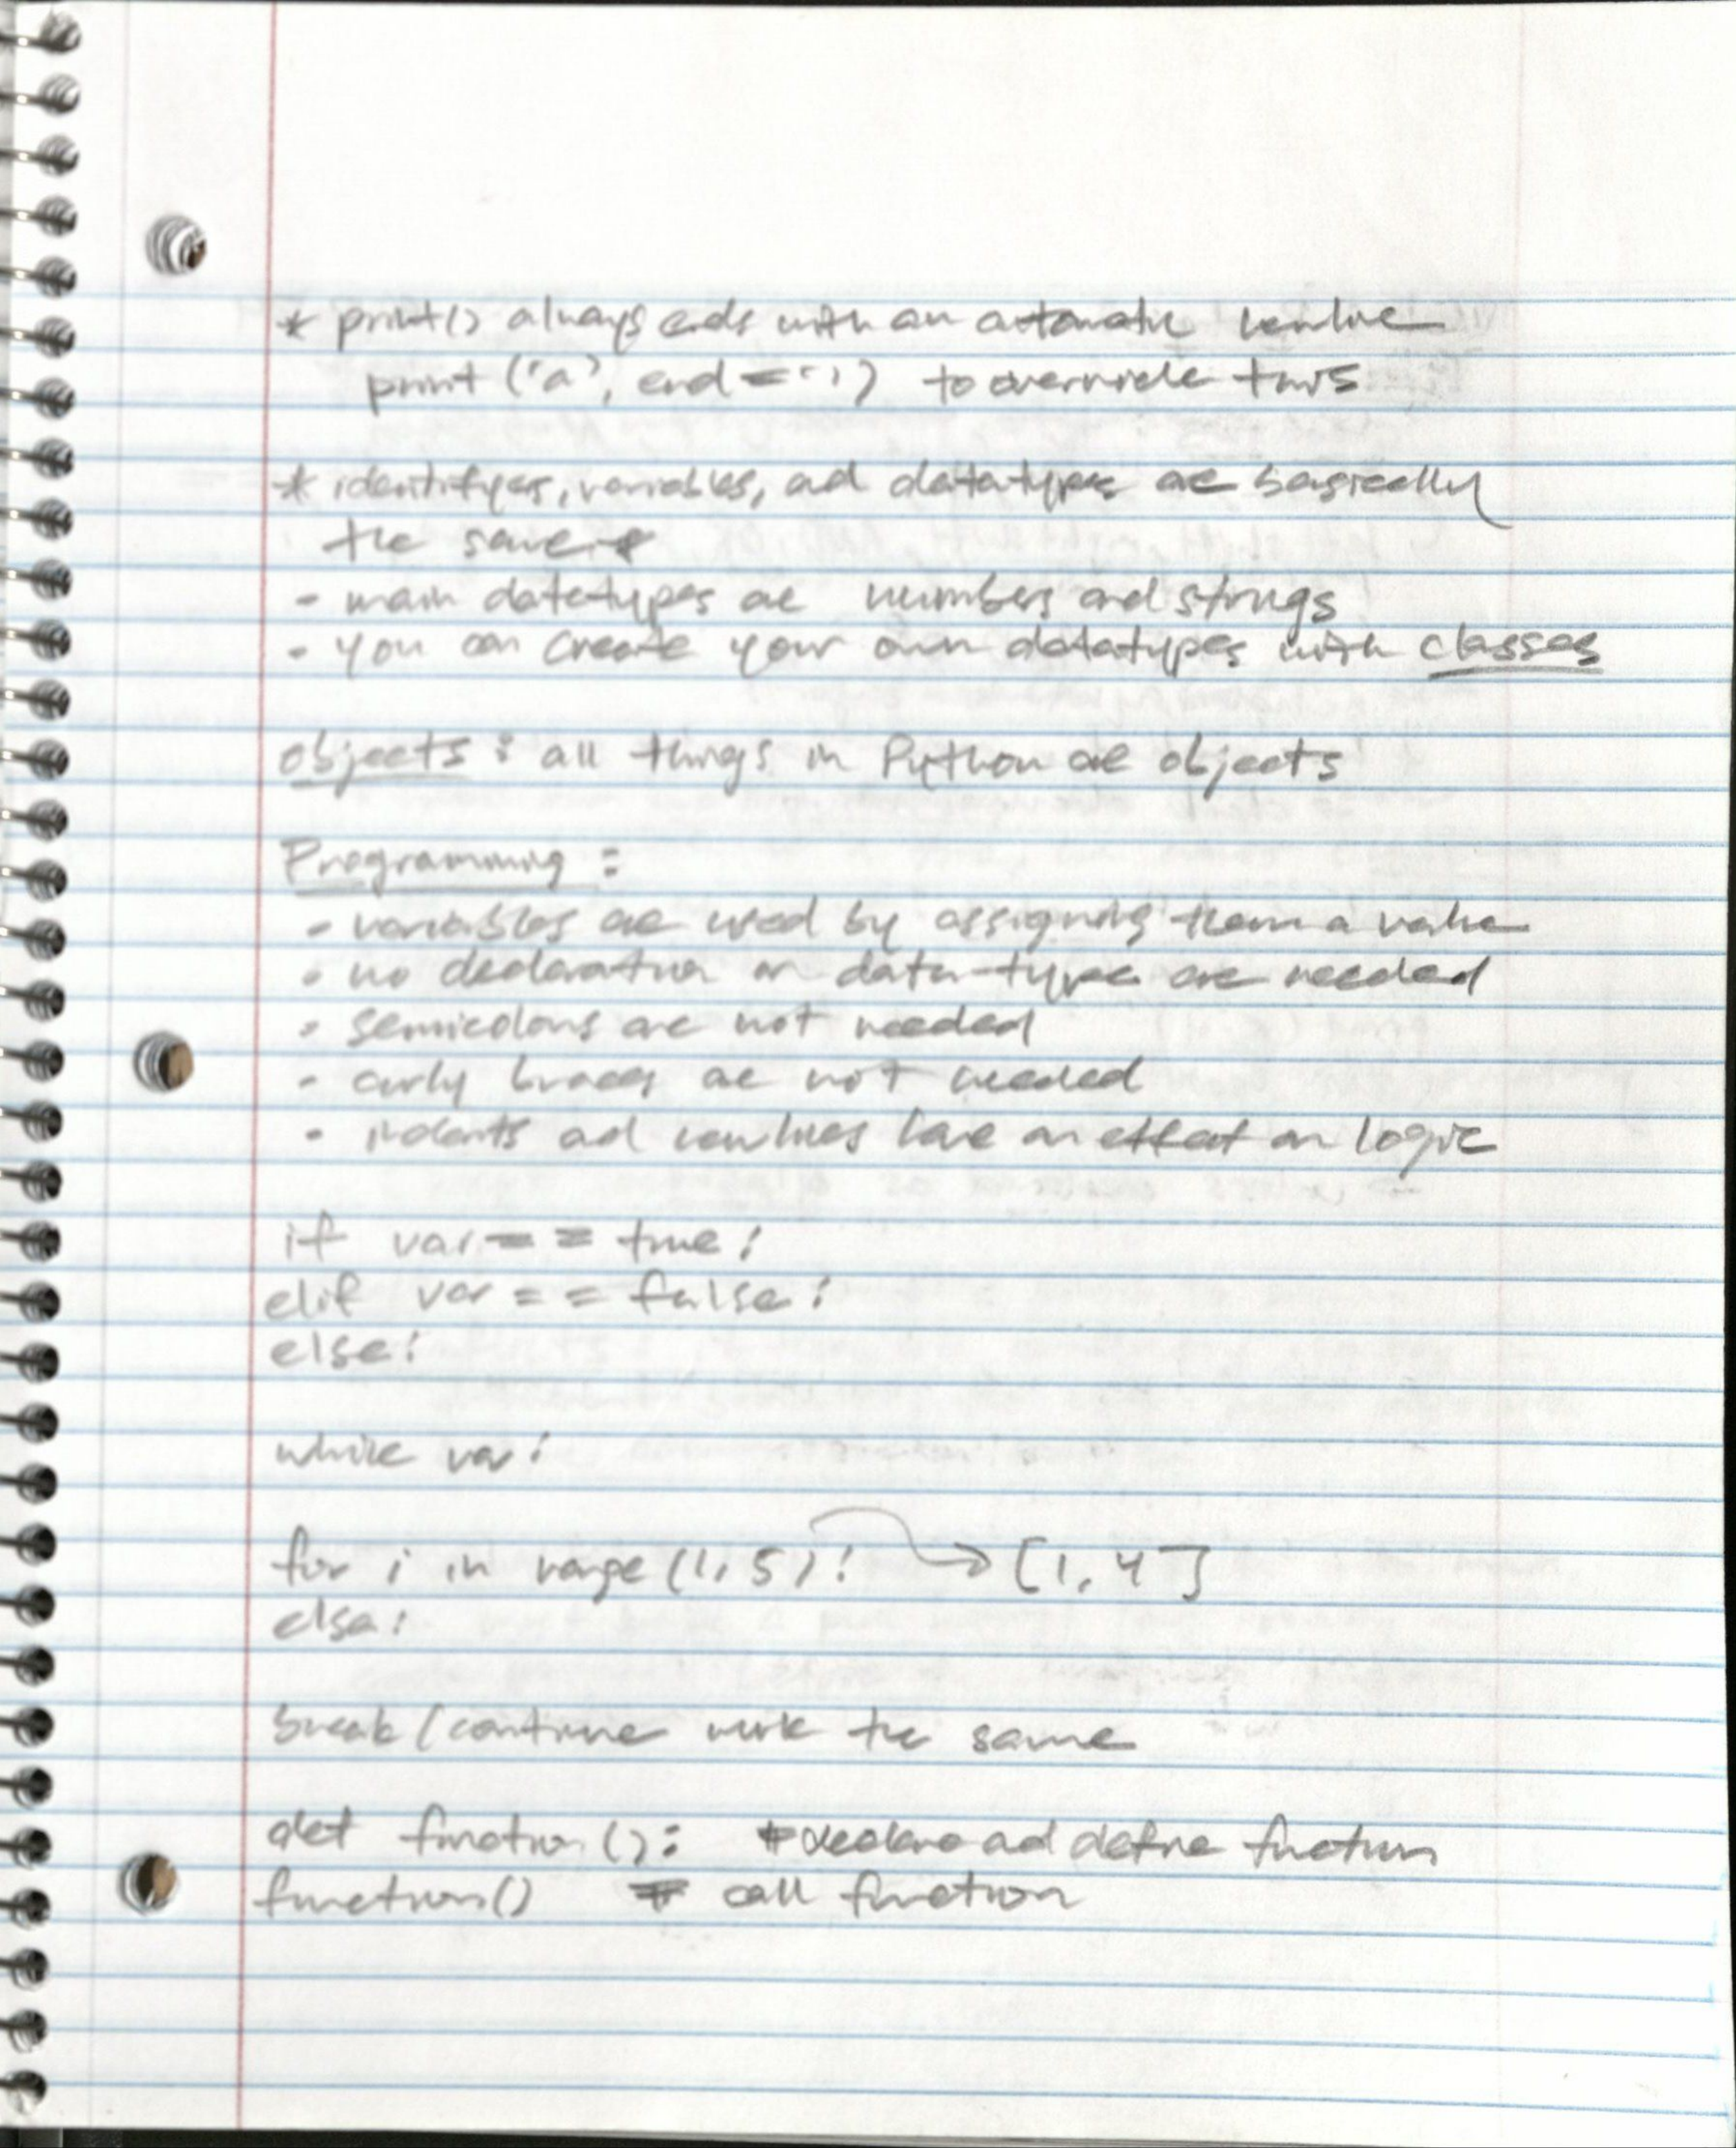 * print() always ends with an automatic newline
print ('a', end = '') to override this
* identifyers, variables, and datatypes are basically
the same
- main datatypes are numbers and strings
- you can create your own datatypes with classes
objects : all things in Python are objects
Programming :
- variables are used by assigning them a value
- no declaration or data-type are needed
- semicolons are not needed
- curly braces are not needed
- indents and newlines have an effect on logic
if var == true :
elif var == false :
else :
while var :
for i in range (1, 5) : → [1, 4]
else :
break / continue work the same
def function () : # declare and define function
function() # call function